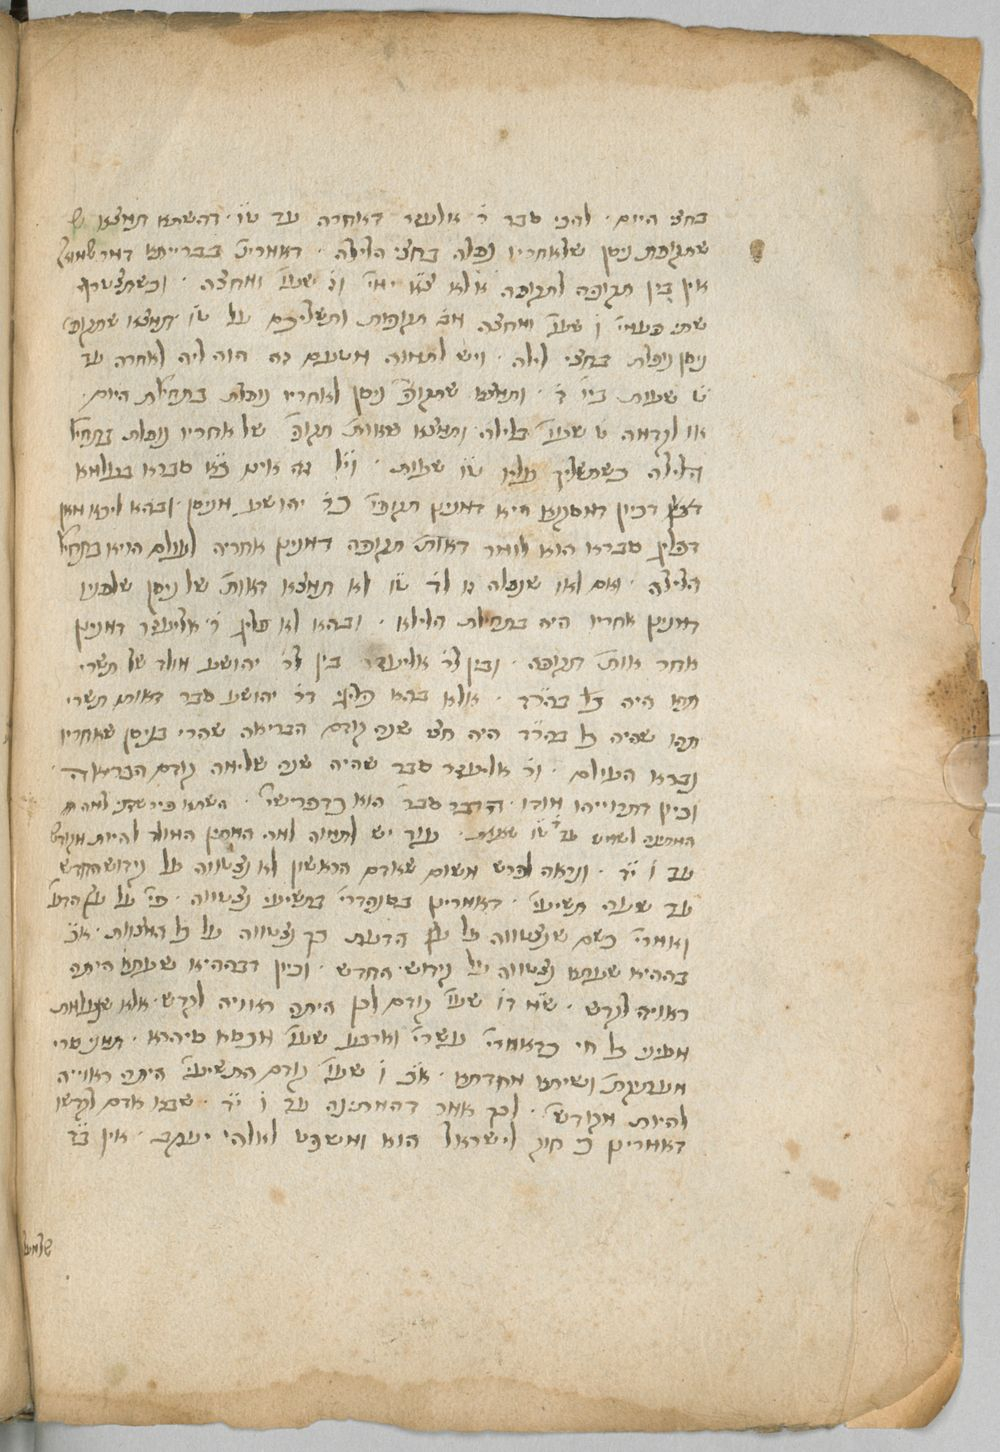 בחצי היום . להכי סבר ר' אלעזר דאחרה עד ט"ו . דהשתא תמצא ש
שתקופת ניסן שלאחריו נפלה בחצי הלילה . דאמרינ' בברייתא דמר שמואל
אין בין תקופה לתקופה אלא צ"א ימי' וז' שעו' ומחצה . וכשתצטרף
שתי פעמי' ז' שעו' ומחצה מב' תקופות ותשליכם על ט"ו תמצא שתקופ'
ניסן נופלת בחצי לילה . ויש לתמוה מטעם זה הוה ליה לאחרה עד
ט' שעות ביו' ד' . ותמצא שתקופ' ניסן לאחריו נופלת בתחילת היום .
או לגדמה ט' שעו' בלילה ותמצא שאות' תקופ' של אחריו נופלת בתחיל'
הלילה כשתשליך עליו ט"ו שעות . וי"ל זה אינו כ"א סברא בעלמא
דכיון דמסקנא היא דמנינן תקופ' כר' יהושע מניסן . ובהא ליכא מאן
דפליג סברא הוא לומר דאות' תקופה דמנינן אחריה לעולם הויא בתחיל'
הלילה . ואם לאו שנפלה זו לד' ט"ו לא תמצא דאות' של ניסן שלפניו
דמנינן אחריו היה בתחילת הלילא . ובהא לא פליג ר' אליעזר דמנינן
אחר אות' תקופה . ובין לר' אליעזר בין לר' יהושע מולד של תשרי
תהו היה כל בהר"ד . אלא בהא פליגי דר' יהושע סבר דאות' תשרי
תהו שהיה כל בהר"ד היה חצי שנה קודם הבריאה שהרי בניסן שאחריו
נברא העולם . ור' אליעזר סבר שהיה שנה שלימה קודם הבריאה .
וכיון דתרוייהו מודו . הדבר סבר' הוא כדפרישי' . השתא פירשתי למה ת'
המתינה לשמש עד ד' ט"ו שעות . עוד יש לתמוה למה המתין המולד להיות מקודש
עד ו' י"ד . ונראה לפרש משום שאדם הראשון לא נצטווה על קידוש החדש
עד שעה תשיעי' . דאמרינן בסנהדרי' בתשיעי' נצטווה . פי' על עץ הדע'
ואמרי' כשם שנצטווה על עץ הדעת כך נצטווה על כל המצות . א"כ
בההיא שעתא נצטווה על קידוש החדש . וכיון דבההיא שעתא היתה
ראויה לקדש . ש"מ דו' שעו' קודם לכן היתה ראוייה לקדש . אלא שנעלמת
מעיני כל חי כדאמרי' עשרי' וארבע שעו' מכסא סיהרא . תמניסרי
מעתיקת' ושיתא מחדתא . א"כ ו' שעו' קודם התשיעי' היתה ראוייה
להיות מקודש' . לכך אמר דהמתינה עד ו' י"ד . שבאו אדם לקדשו
דאמרינן כי חוק לישראל הוא ומשפט לאלהי יעקב . אין ב"ד
שלמעל'